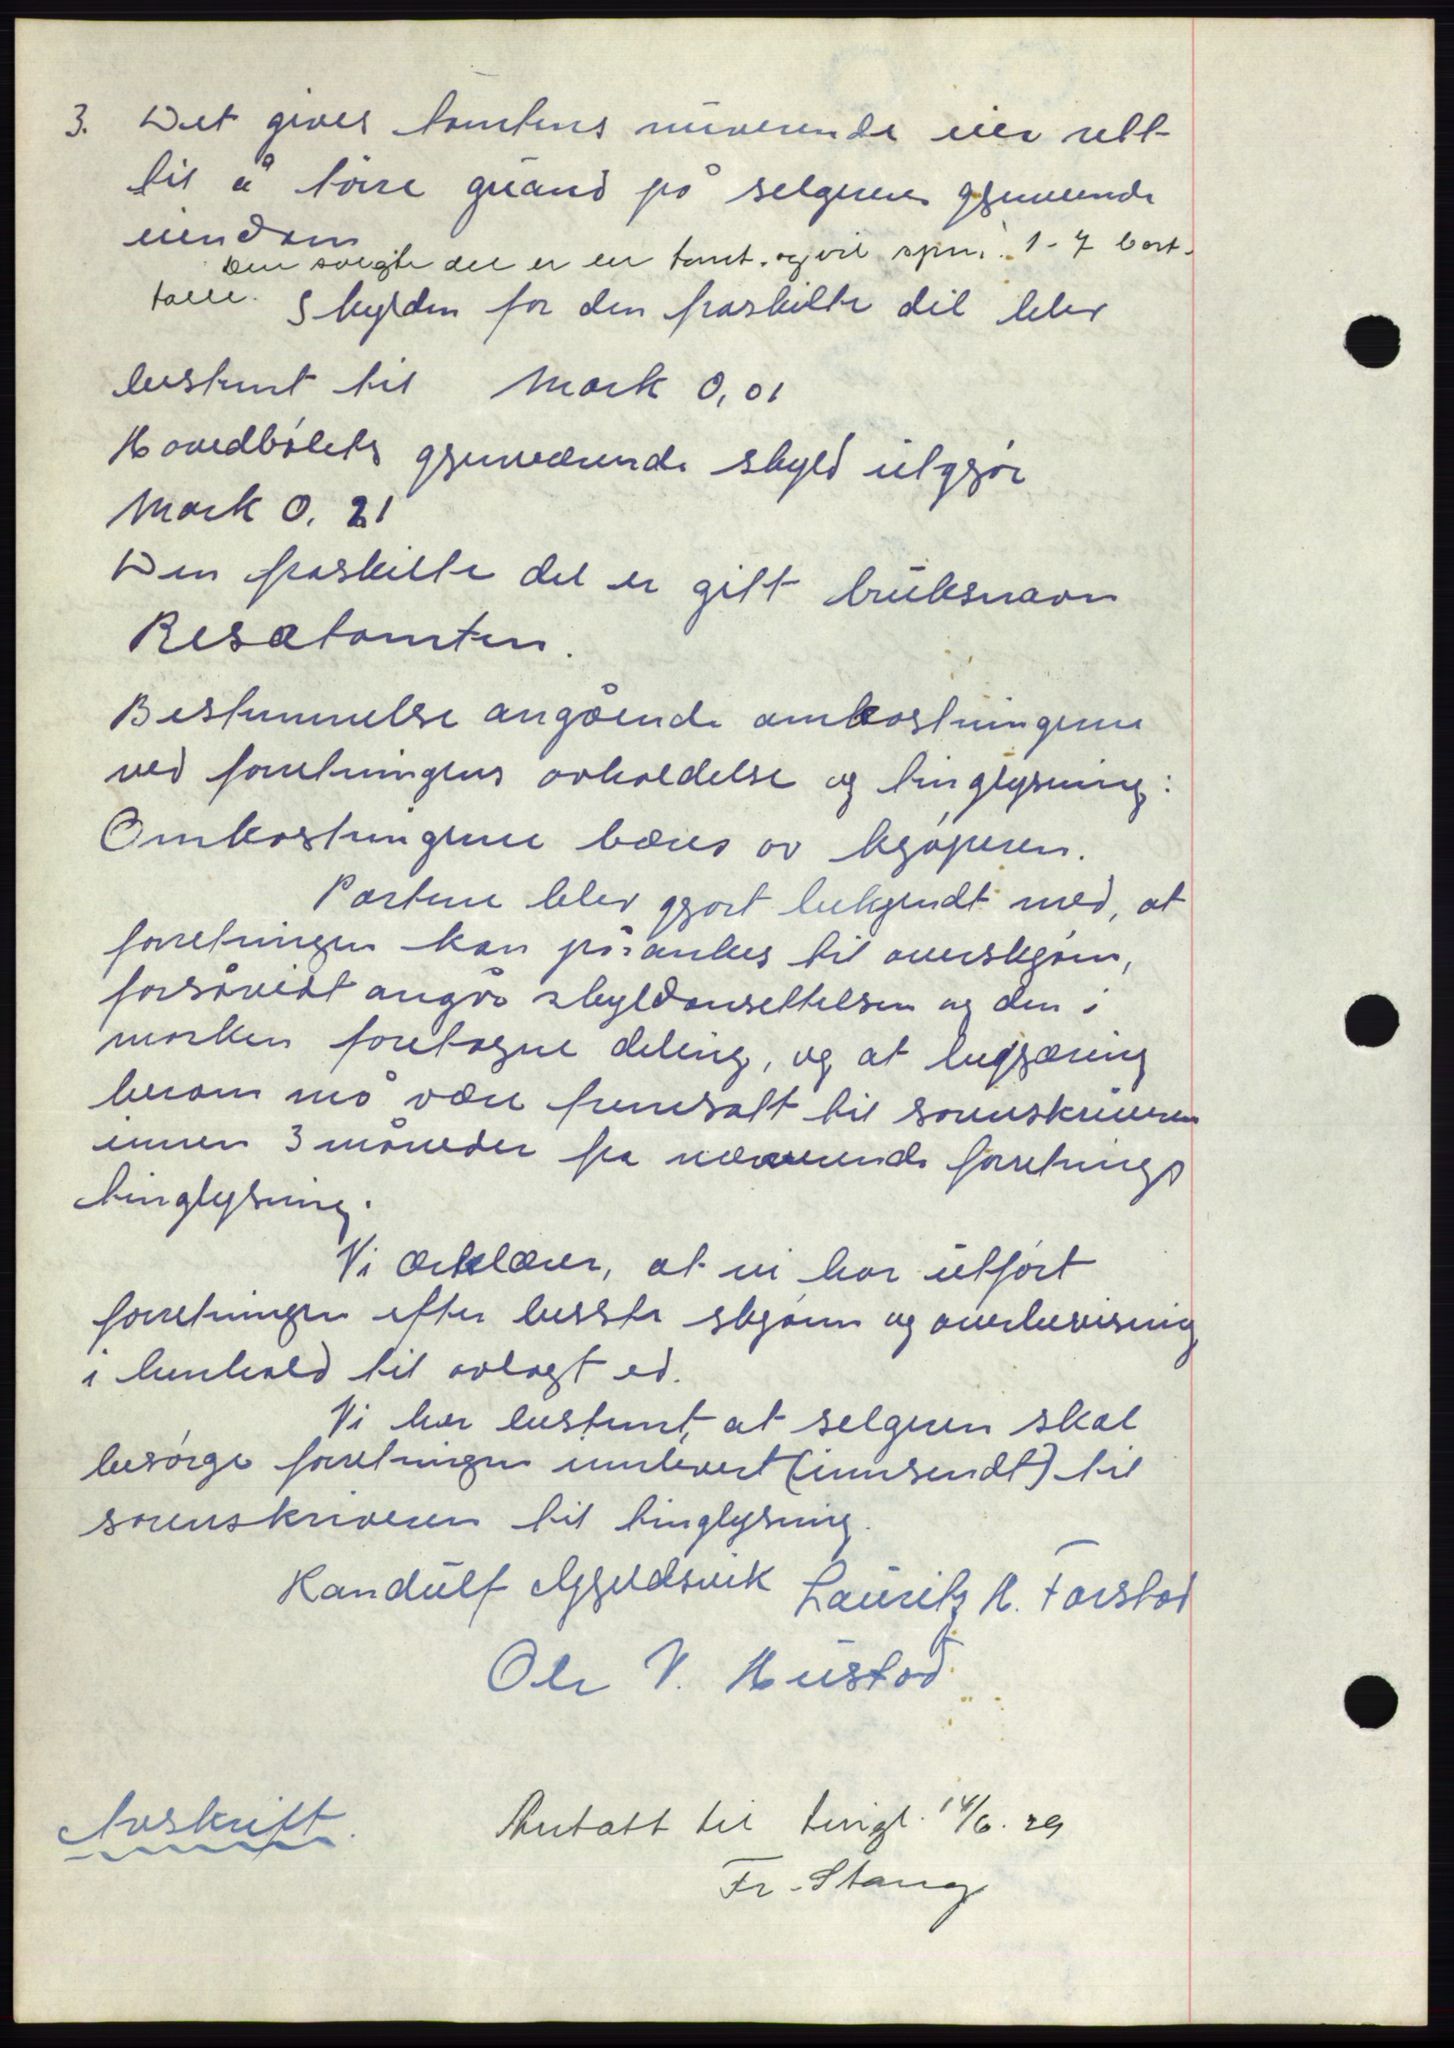 3. Det gives tomtens nuverende eier rett
til å tørre guand på selgerens gjenverende
eiendom
Den solgte del er en tomt. og vil spm. 1-7 bort-
falle.
Skylden for den fraskilte del blev
bestemt til Mark 0,01
Hovedbølets gjenværende skyld utgjør
Mark 0.21
Den fraskilte del er gitt bruksnavn
Besætomten.
Bestemmelse angående omkostningerne
ved forretningens avholdelse og tinglysning:
Omkostningerne bæres av kjøperen.
Partene blev gjort bekjendt med, at
forretningen kan påankes til overskjønn,
forsåvidt angår skyldansettelsen og den i
marken foretagne deling, og at begjæring
herom må være fremsatt til sorenskriveren
innen 3 måneder fra nærværende forretnings
tinglysning.
Vi ærklærer, at vi har utført
forretningen efter beste skjønn og overbevisning
i henhold til avlagt ed.
Vi har bestemt, at selgeren skal
besørge forretningen innlevert (innsendt) til
sorenskriveren til tinglysning.
Randulf Gjeldsvik Lauritz H. Farstad
Ole V. Hustad
Avskrift.
Antatt til tingl. 14/6. 29
Fr. Stang